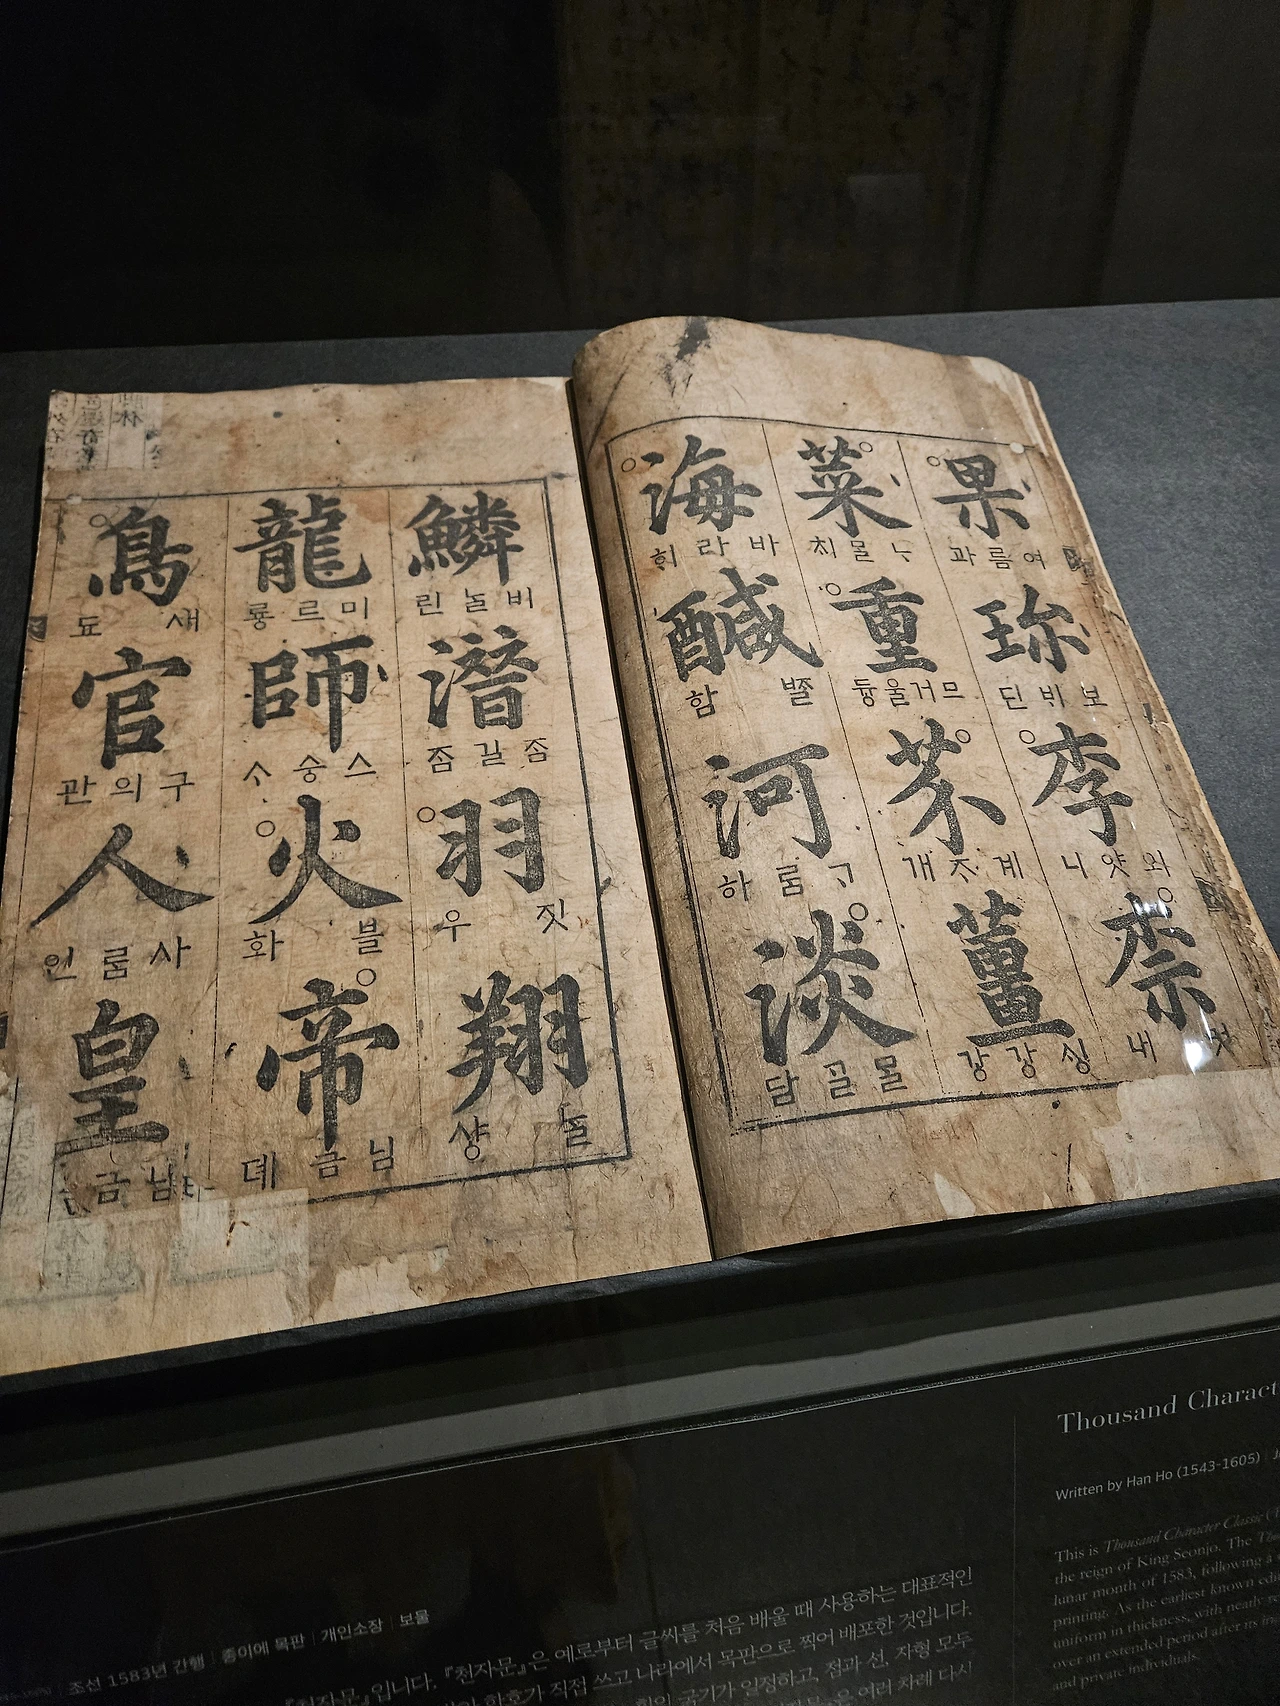 果 여름과
珍 보비딘
李 니
柰 내
菜 ᄂᆞ믈ᄎᆡ
重 므거울듕
芥 계ᄌᆞ개
薑 싱강강
海 바라ᄒᆡ
鹹 함
河 ᄀᆞ룸하
淡 담
鱗 비늘린
潛 ᄌᆞᆷ길ᄌᆞᆷ
羽 짓우
翔 샹
龍 미르룡
師 스승ᄉᆞ
火 블화
帝 님금뎨
鳥 새됴
官 구의관
人 사ᄅᆞᆷ인
皇 님금
조선 1583년 간행 | 종이에 목판 | 개인소장 | 보물
『천자문』입니다. 『천자문』은 예로부터 글씨를 처음 배울 때 사용하는 대표적인
한호가 직접 쓰고 나라에서 목판으로 찍어 배포한 것입니다.
획의 굵기가 일정하고, 점과 선, 자형 모두
여러 차례 다시
Thousand Charact
Written by Han Ho (1543-1605)
This is Thousand Character Classic
the reign of King Seonjo. The
lunar month of 1583, following a
printing. As the earliest known
uniform in thickness, with nearly
over an extended period after its
and private individuals.